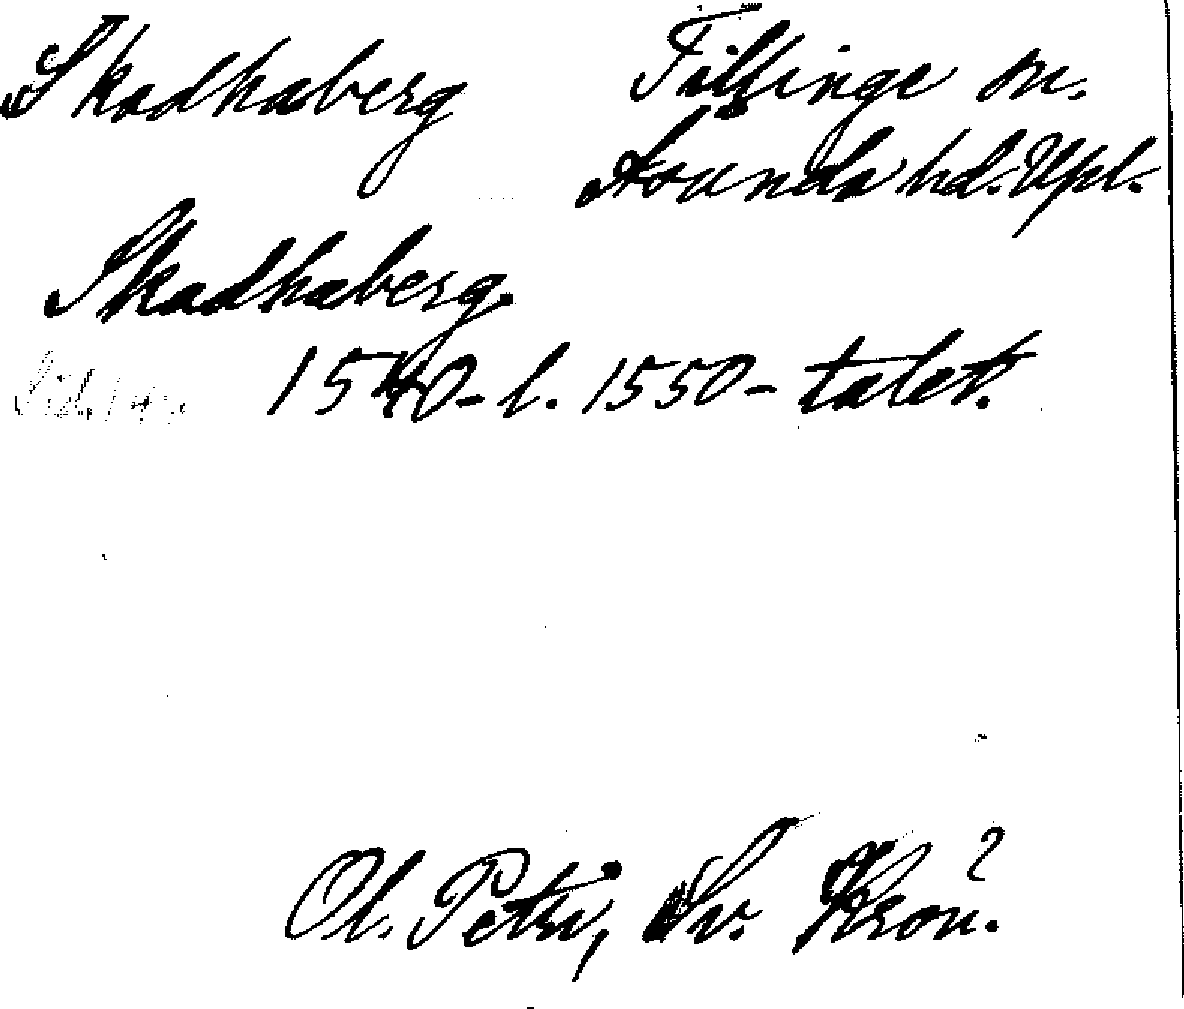 Skadhaberg Tillinge sn.
Åsunda hd. Upl.
Skadhaberg.
1540- l. 1550-talet.
Ol. Petri, Sv. Krön.